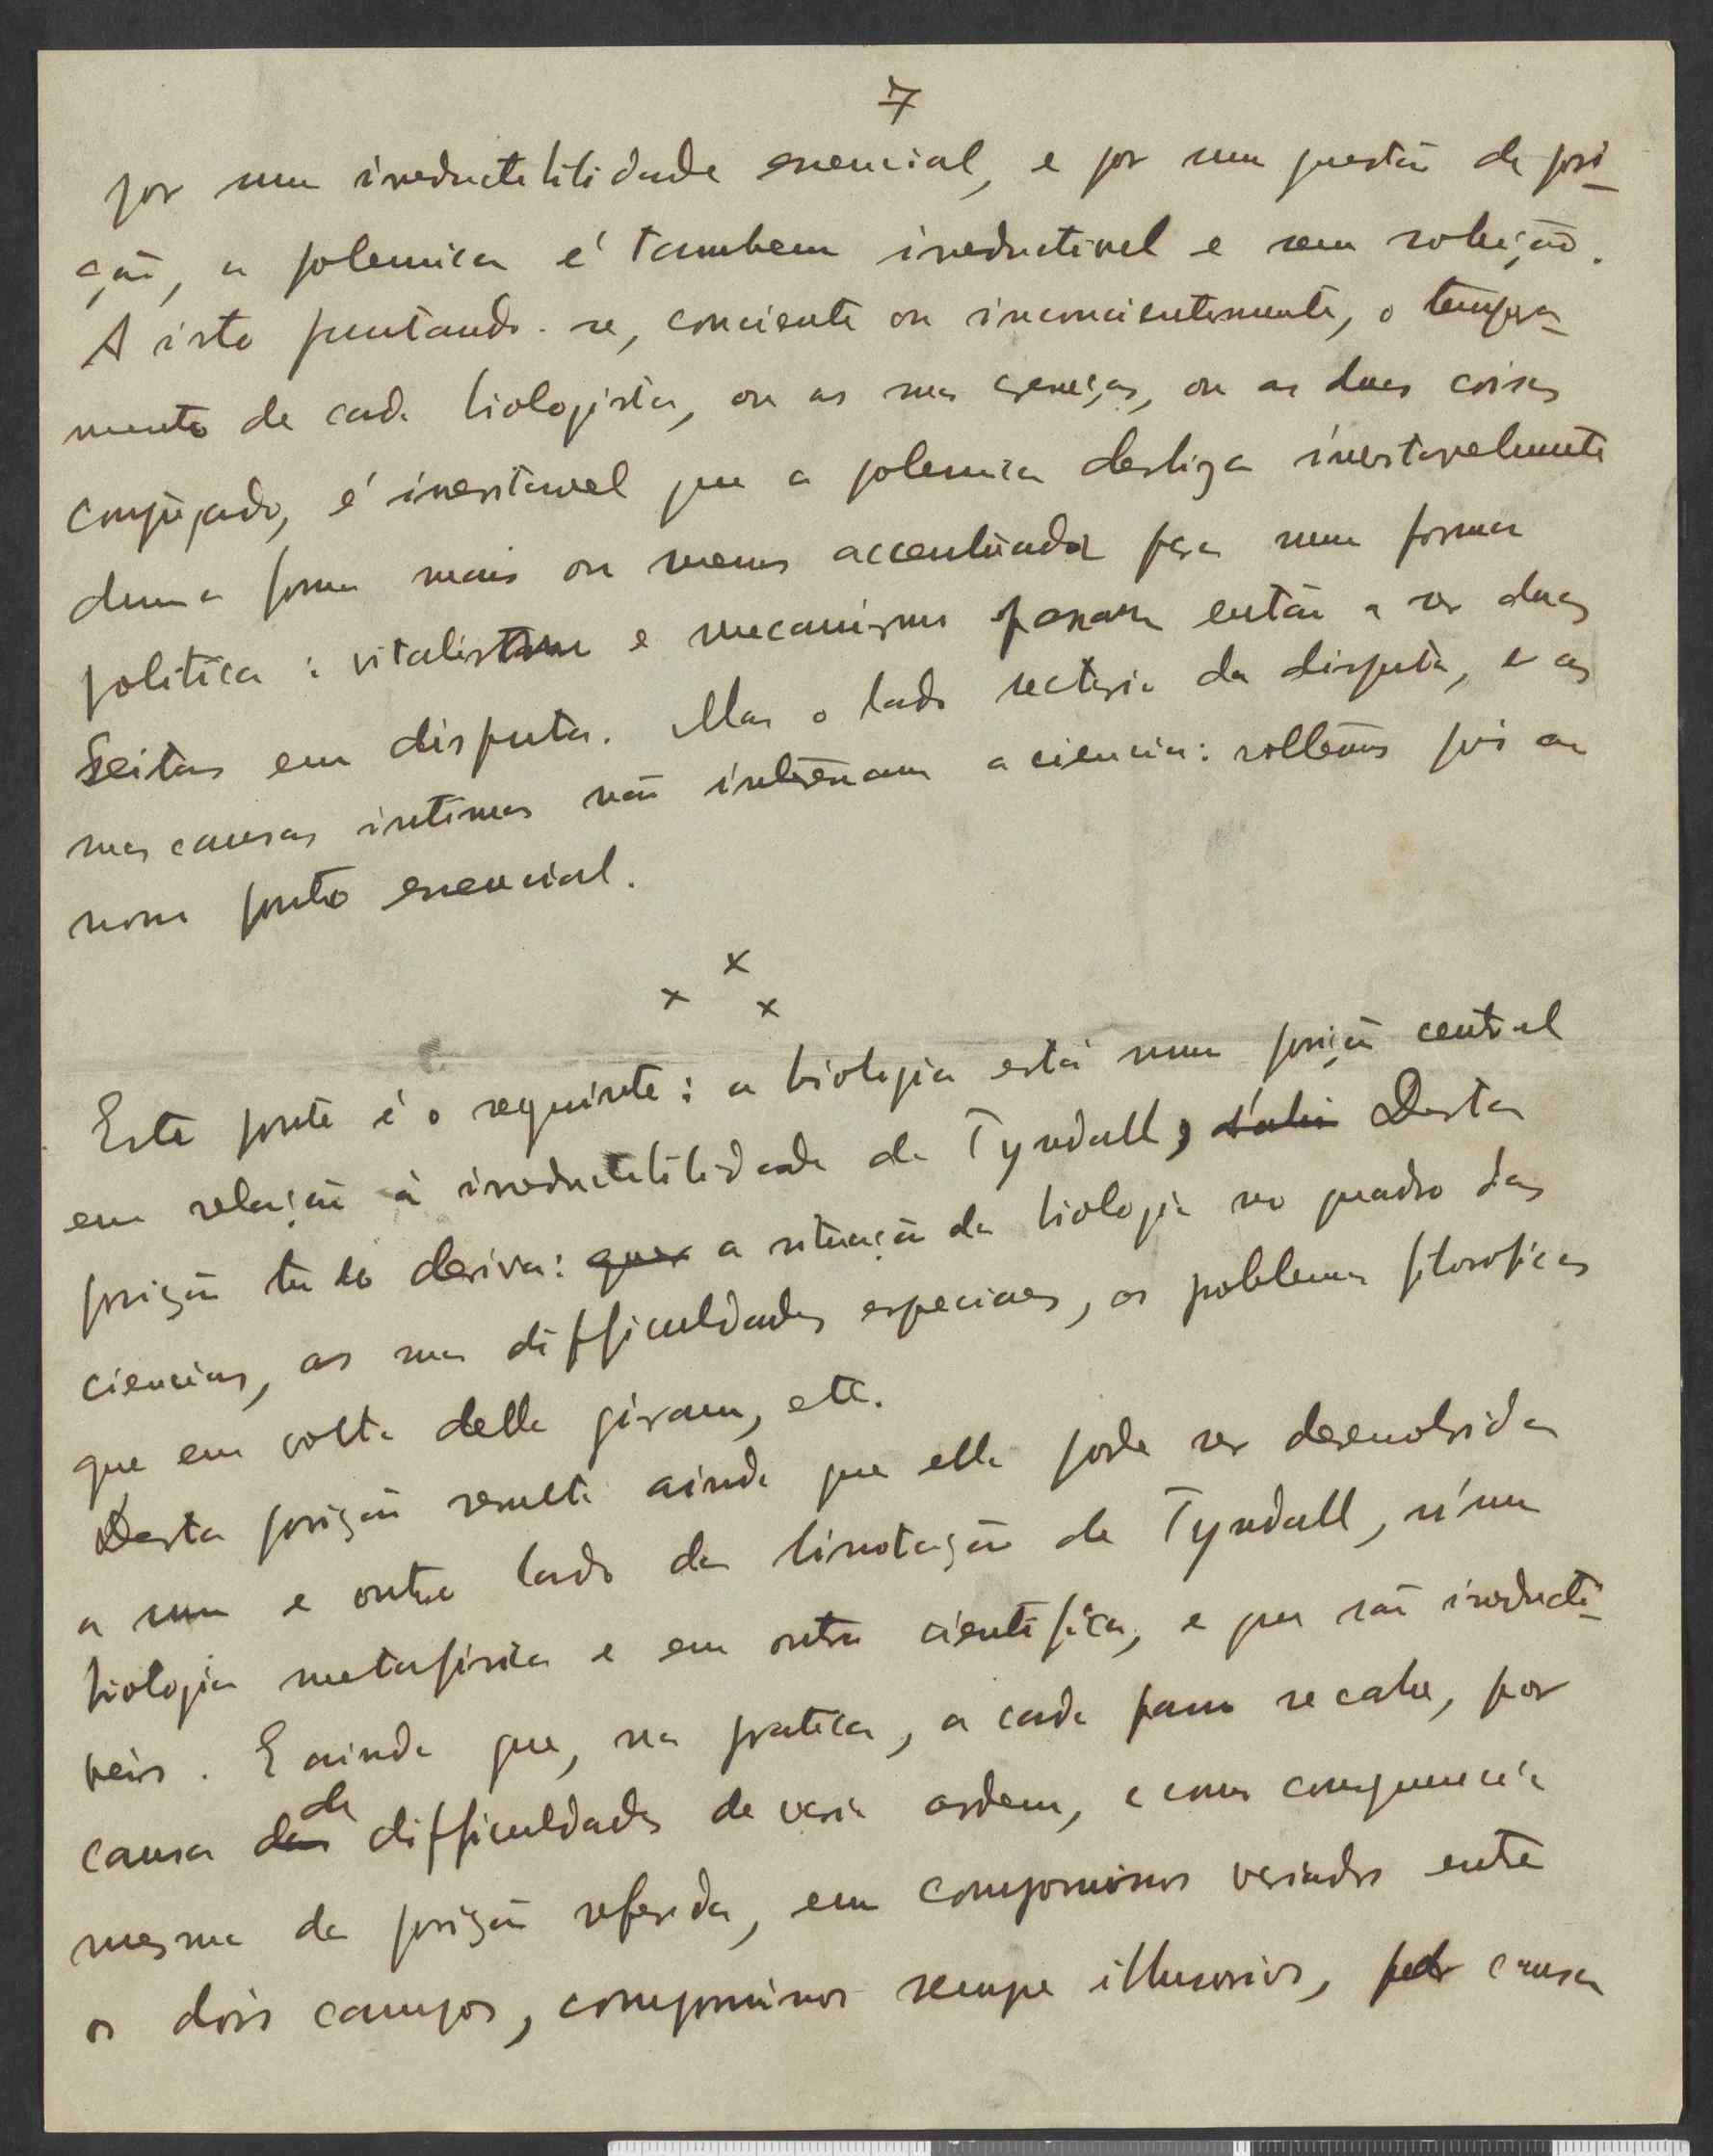 7
por uma irreductibilidade essencial, e por uma questão de posi-
ção, a polemica é tambem irreductivel e sem solução.
A isto juntando-se, conciente ou inconcientemente, o tempera-
mento de cada biologista, ou as suas crenças, ou as duas coisas
conjugado, é inevitavel que a polemica desliza inevitavelmente
duma forma mais ou menos accentuada para uma forma
politica: vitalismo e mecanismo passam então a ser duas
seitas em disputa. Mas o lado sectario da disputa, e as
suas causas intimas não interessam a ciencia: voltemos pois ao
nosso ponto essencial.
x
x x
Este ponto é o seguinte: a biologia está numa posição central
em relação á irreductibilidade de Tyndall, Desta
posição tudo deriva: quer a situação da biologia no quadro das
ciencias, as suas difficuldades especiaes, os problemas filosoficos
que em volta della giram, etc.
Desta posição resulta ainda que ella pode ser desenvolvida
a um e outro lado da limitação de Tyndall, n'um
biologia metafisica e em outro cientifica, e que são irreducti-
veis. E ainda que, na pratica, a cada passo se cahe, por
causa das de difficuldades de varia ordem, e como consequencia
mesma da posição referida, em compromissos variados entre
os dois campos, compromissos sempre illusorios, por causa